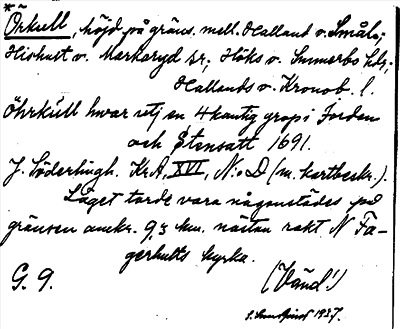 * Örkull, höjd på gräns. mell. Halland o. Smål.;
Hishult o. Markaryd sr; Höks o. Sunnerbo hdr;
Hallands o. Kronob. l.
öhrkull hwar vtj en 4kantig grop i Jorden
och Stensatt 1691.
J. Söderlingh. Kr.A, XVI, N:o D (m. kartbeskr.).
Läget torde vara någonstädes på
gränsen omkr. 9,3 km. nästan rakt N Fa-
gerhults kyrka.
G. 9.
(Vänd!)
1937.